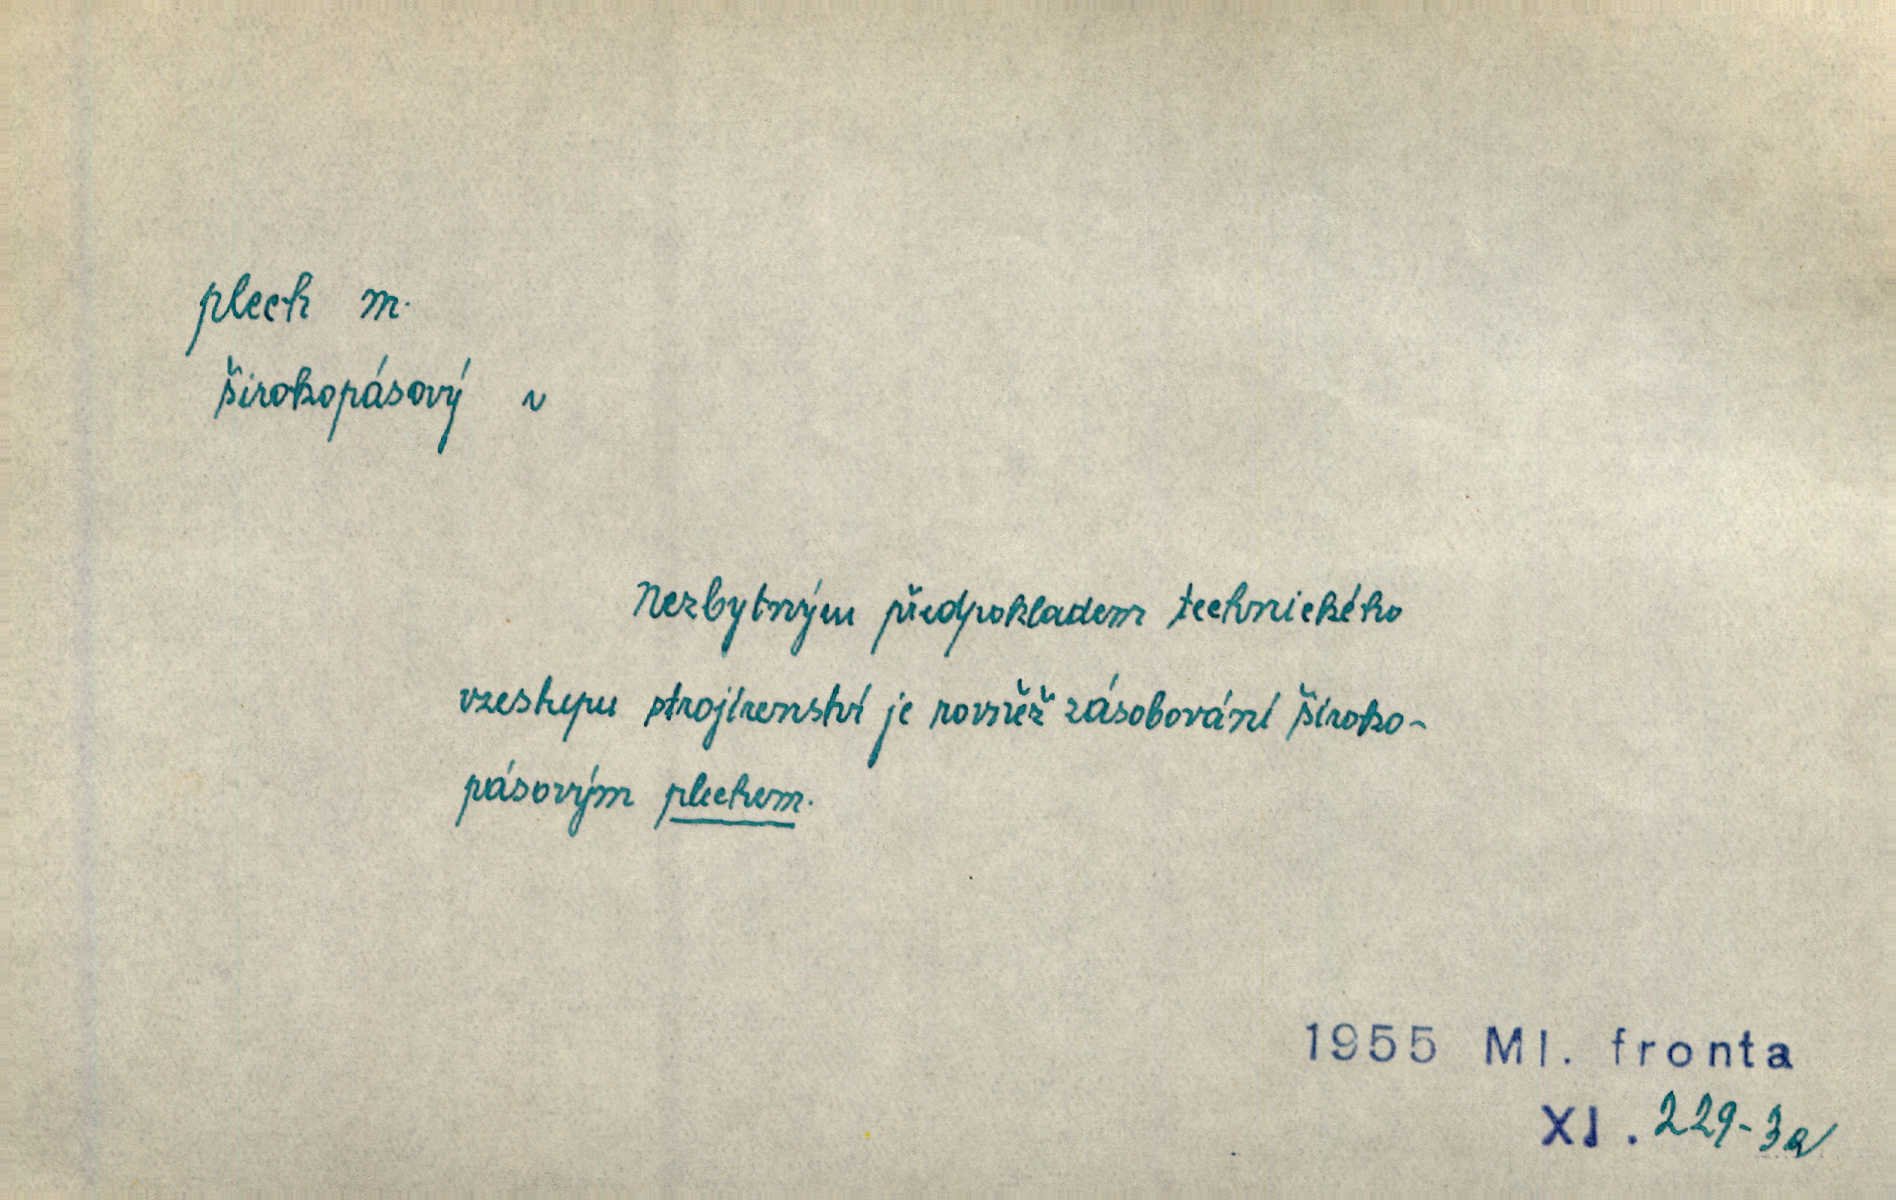 plech m.
širokopásový ~
Nezbytným předpokladem technického
vzestupu strojírenství je rovněž zásobování široko-
pásovým plechem.
1955 Ml. fronta
XI. 229-3a